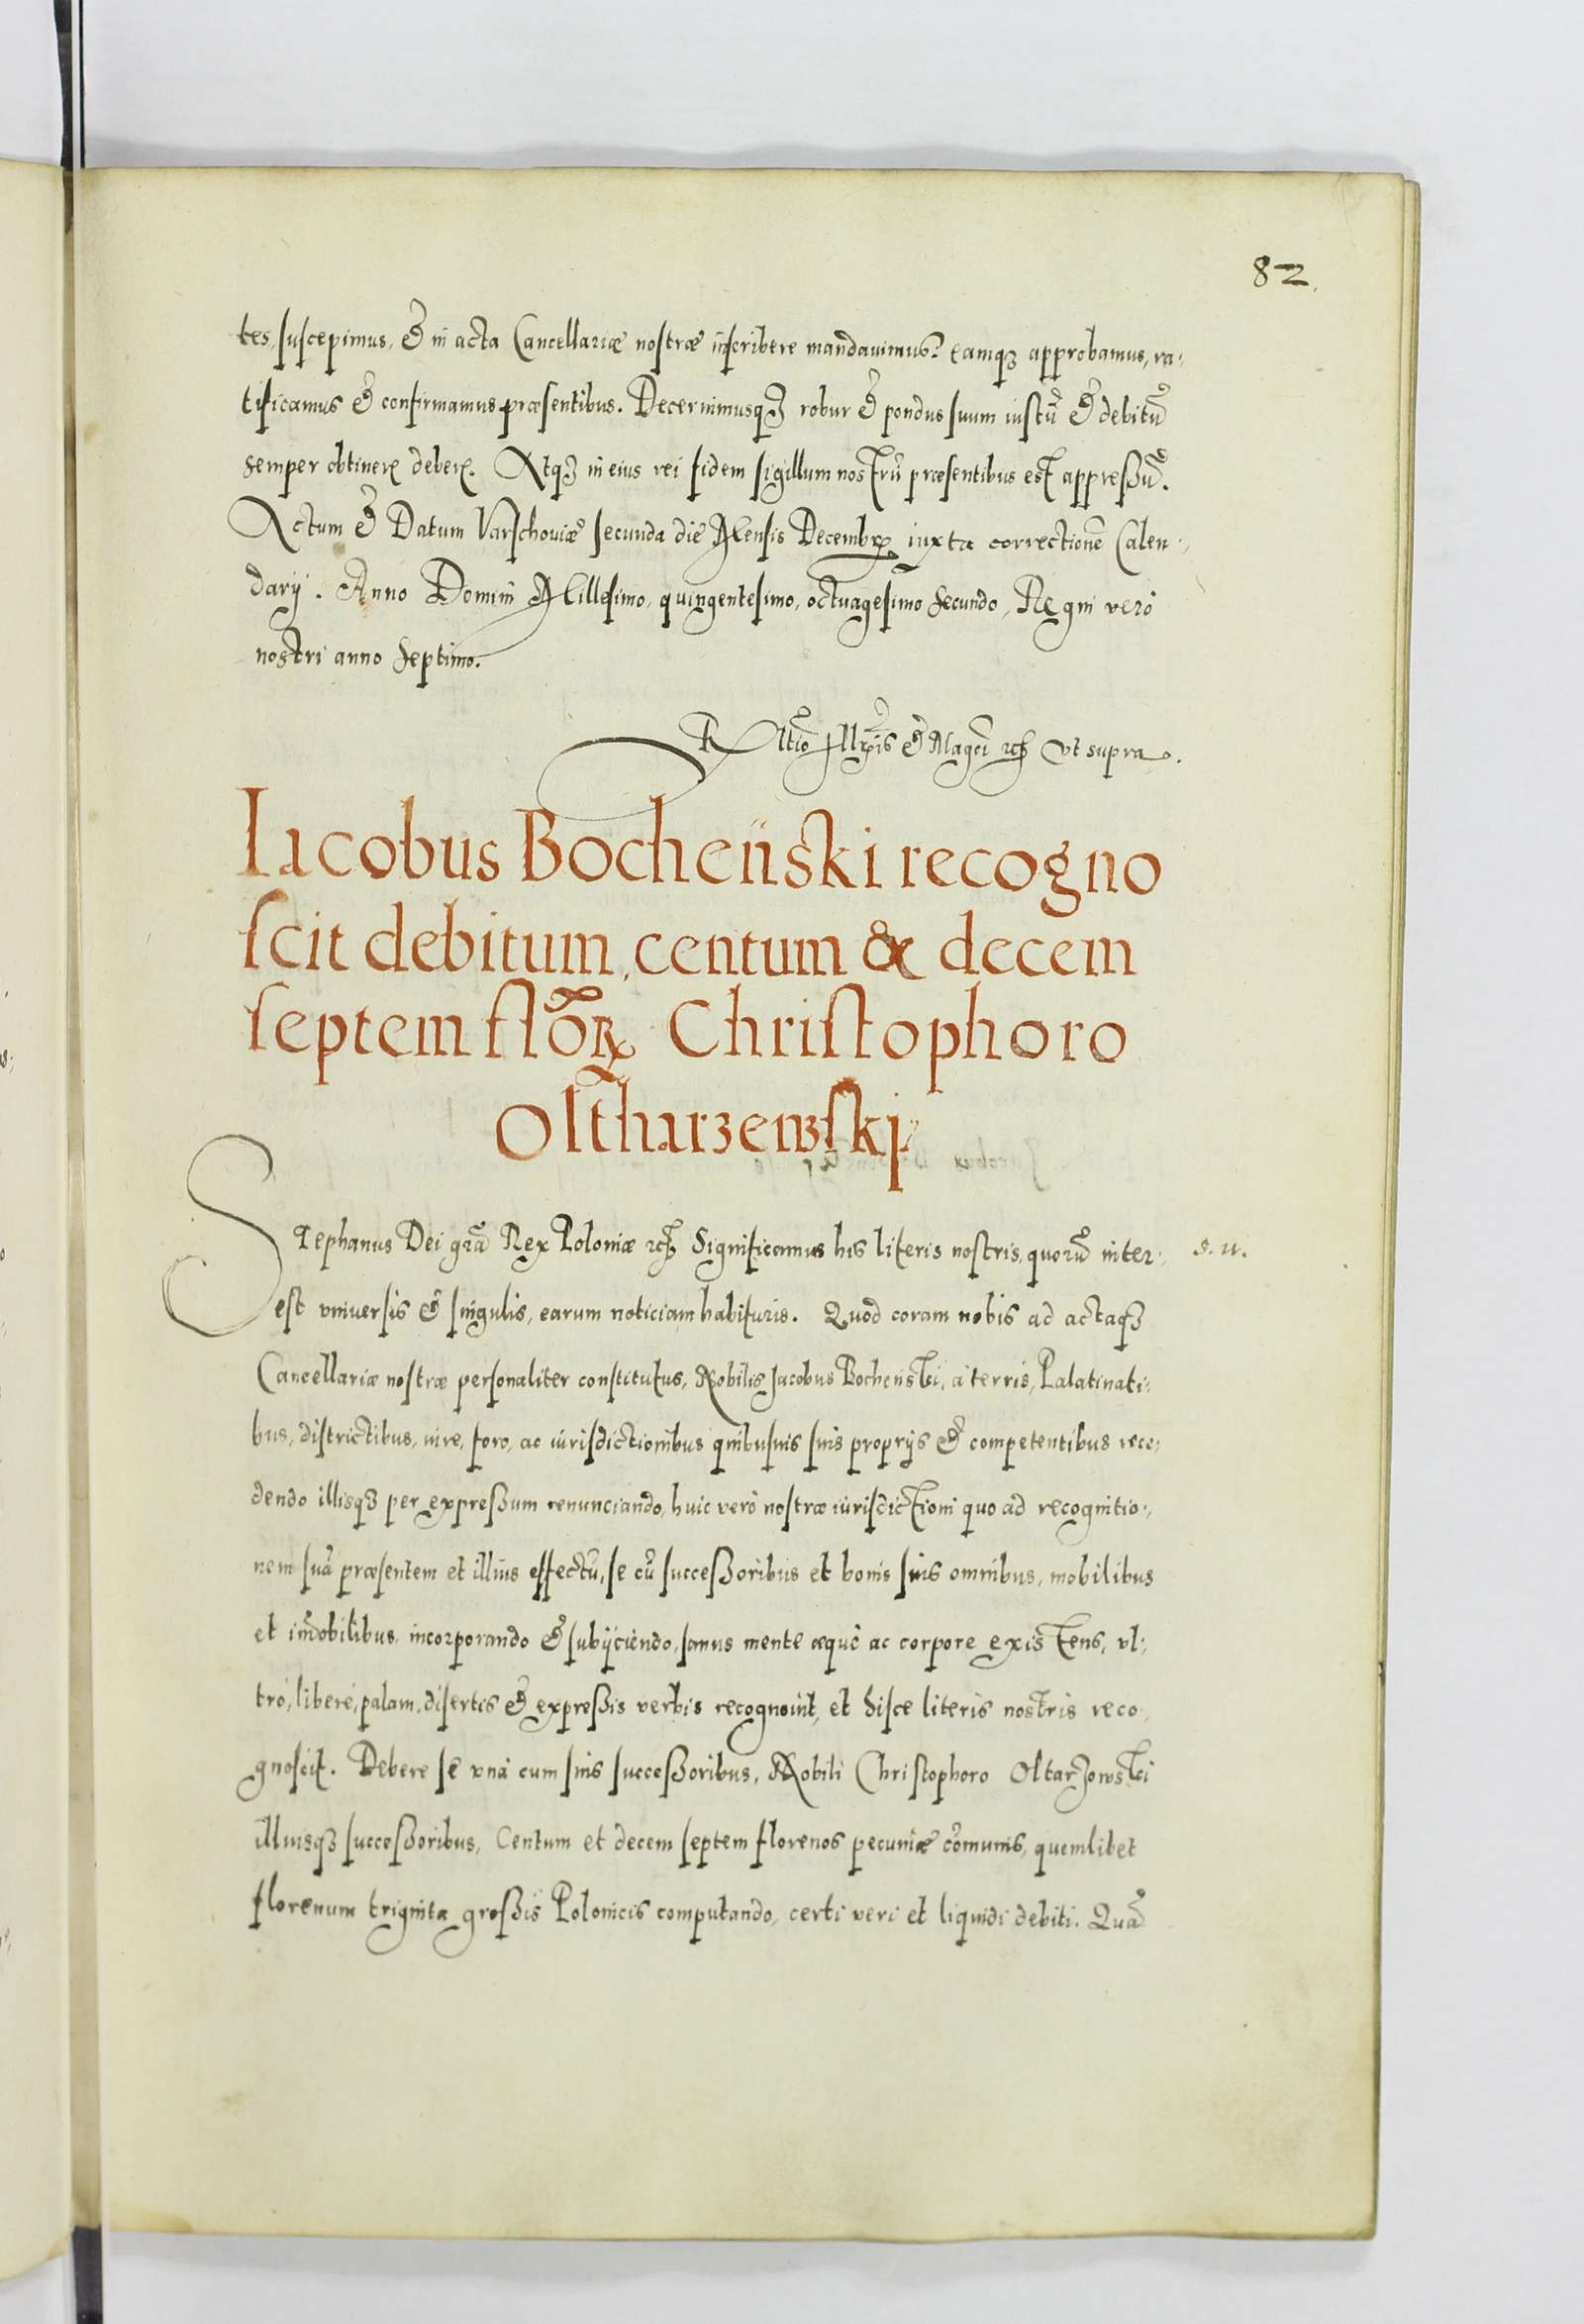 82.
tes, suscepimus, & in acta Cancellariæ nostræ inscribere mandauimus: eamqʒ approbamus, ra-
tificamus & confirmamus præsentibus. Decernimusqʒ robur & pondus suum iustũ & debitũ
semper obtinere debere. Atqʒ in eius rei fidem sigillum nostrũ præsentibus est appressũ.
Actum & Datum Varschouiæ secunda die Mensis Decembrꝭ iuxta correctionẽ Calen-
darij. Anno Domini Millesimo, quingentesimo, octuagesimo secundo, Regni verò
nostri anno septimo.
Rlatio Illrĩs & Magci etc̃ vt supra.
Iacobus Bocheński recogno
scit debitum, centum & decem
septem flõrꝝ Christophoro
Oltharzewski
Stephanus Dei grã Rex Poloniæ etc̃ Significamus his literis nostris, quorũ inter-
s. u.
est vniuersis & singulis, earum noticiam habituris. Quod coram nobis ad actaqʒ
Cancellariæ nostræ personaliter constitutus, Nobilis Jacobus Bocheński, à terris, Palatinati-
bus, districtibus, iure, foro, ac iurisdictionibus quibusuis suis proprijs & competentibus rece-
dendo illisqʒ per expressum renunciando, huic verò nostræ iurisdictioni quo ad recognitio-
nem suã præsentem et illius effectũ, se cũ successoribus et bonis suis omnibus, mobilibus
et im̃obilibus, incorporando & subijciendo, sanus mente æquè ac corpore existens, vl-
trò, liberè, palam, disertis & expressis verbis recognouit, et hisce literis nostris reco-
gnoscit. Debere se vnà cum suis successoribus, Nobili Christophoro Oltarzowski
illiusqʒ successoribus, Centum et decem septem florenos pecuniæ cõmunis, quemlibet
florenum triginta grossis Polonicis computando, certi veri et liquidi debiti. Quã